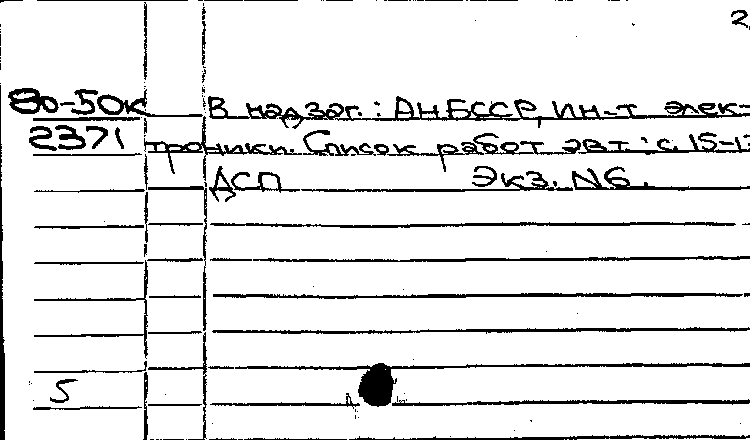 2
80-50к В надзаг.: АН БССР, Ин-т элек-
2371 троники. Список работ авт.: с. 15-1
ДСП Экз. N6.
5